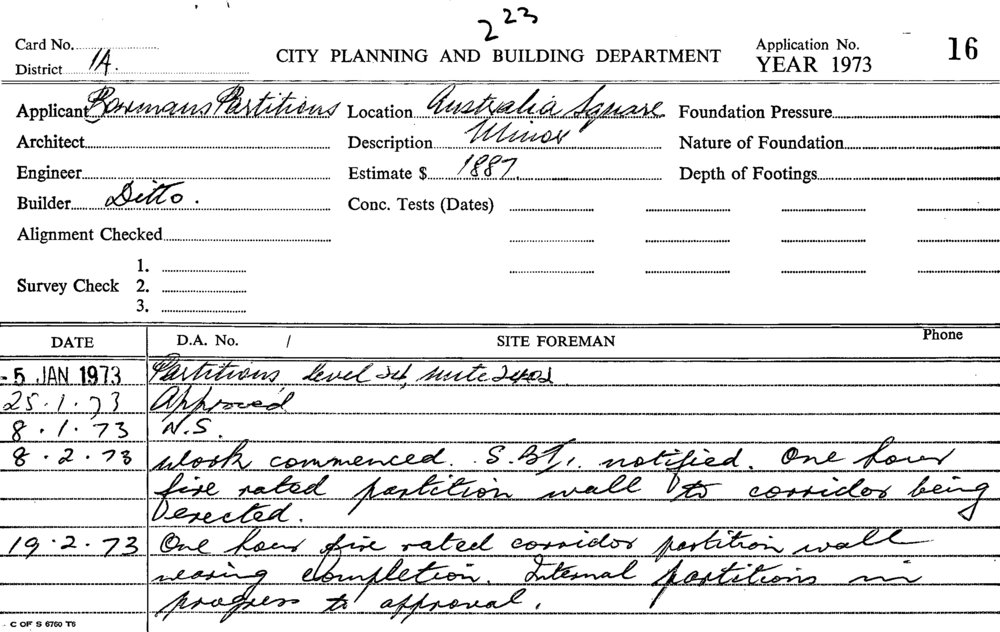 223
Card No.
District 1A.
CITY PLANNING AND BUILDING DEPARTMENT
Application No. 16
YEAR 1973
Applicant Partitions Location Australia Square Foundation Pressure
Architect Description Minor Nature of Foundation
Engineer Estimate $ 1887. Depth of Footings
Builder Ditto. Conc. Tests (Dates)
Alignment Checked
1.
Survey Check 2.
3.
DATE D.A. No. / SITE FOREMAN Phone
-5 JAN 1973 Partitions, level 24, suite 2402
25.1.73 Approved
8.1.73 N.S.
8.2.73 Work commenced. notified. One hour
fire rated partition wall to corridor being
erected.
19.2.73 One hour fire rated corridor partition wall
nearing completion. Internal partitions in
progress to approval.
C OF S 6760 T6